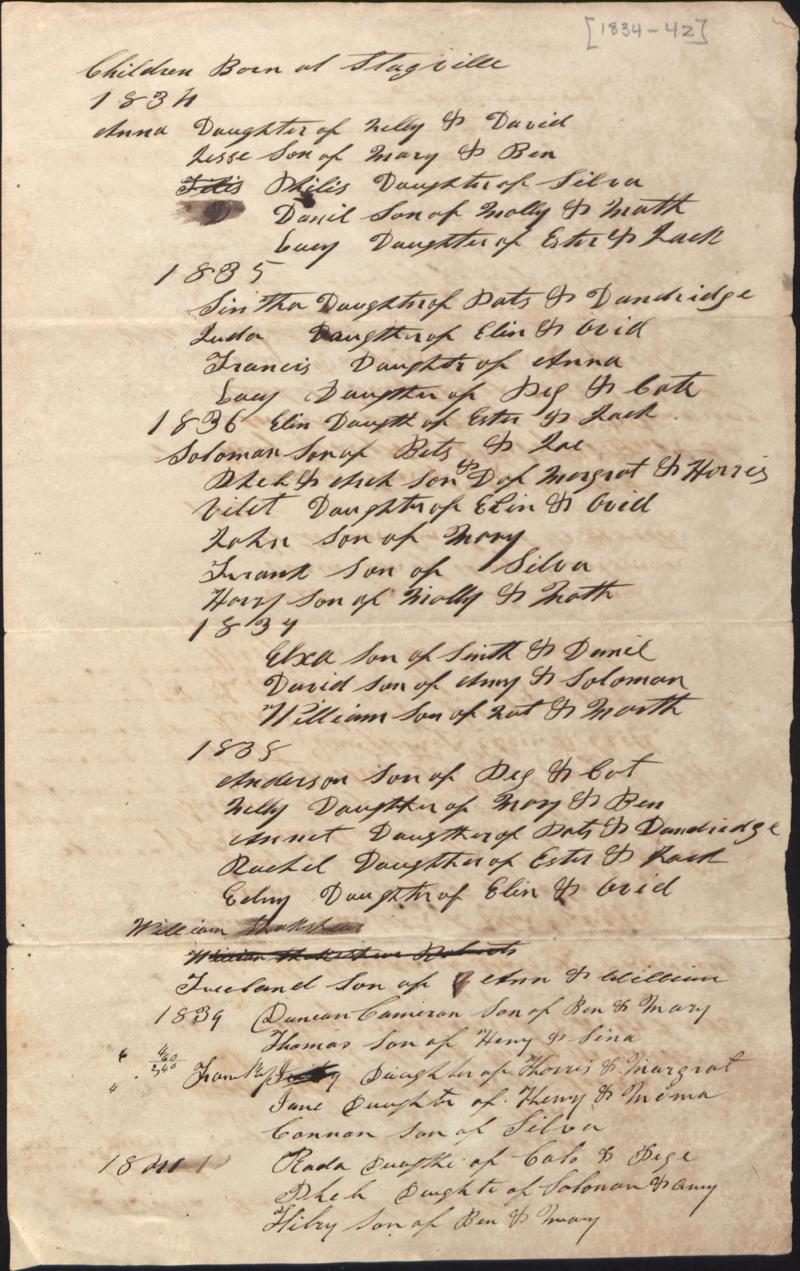 [1834-42]
Children Born at Stagville
1834
Anna Daughter of Nelly & David
Jesse Son of Mary & Ben
Filis Philis Daughter of Silva
Danil Son of Molly & Math
Lucy Daughter of Ester & Jack
1835
Sintha Daughtr of Pats & Dandridge
Juda Daugther of Elin & Ovid
Francis Daughtr of Anna
Lucy Daugther of Peg & Cato
1836 Elin Daugth of Ester & Jack
Soloman Son of Bets & Joe
Pheb & Son & D of Margrat & Horris
Vilet Daughter of Elin & Ovid
John Son of Mary
Frank Son of Silva
Harry Son of Molly & Math
1837
Son of Sinth & Danil
David Son of Amy & Soloman
William Son of Nat & Marth
1838
Anderson Son of Peg & Cat
Nelly Daughter of Mary & Ben
Annet Daugther of Pats & Dandridge
Rachel Daughther of Ester & Jack
Daughtr of Elin & Ovid
William
William
Freeland Son of Ann & William
1839 Duncan Cameron Son of Ben & Mary
Thomas Son of Henry & Sina
Daughter of Horris & Margrat
Jane Daughter of Henry & Mima
Cannon Son of Silva
Rada of Cato & Pege
Pheb Daughtr of Soloman & Amy
Hilry Son of Ben & Mary